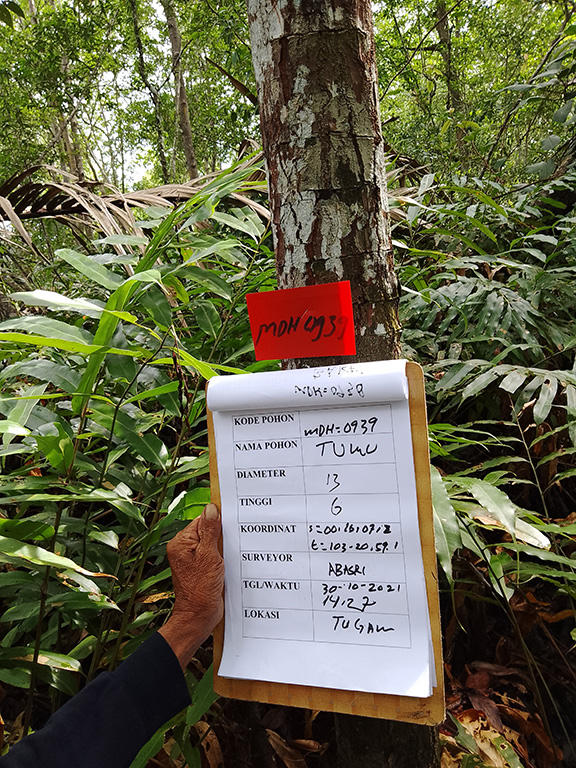 MDH 0939
MDH=0938
KODE POHON MDH=0939
NAMA POHON TUMU
DIAMETER 13
TINGGI 6
KOORDINAT S=00.16.07.2
E=103-20.59.1
SURVEYOR ABASRI
TGL/WAKTU 30-10-2021
14:27
LOKASI TUGAM